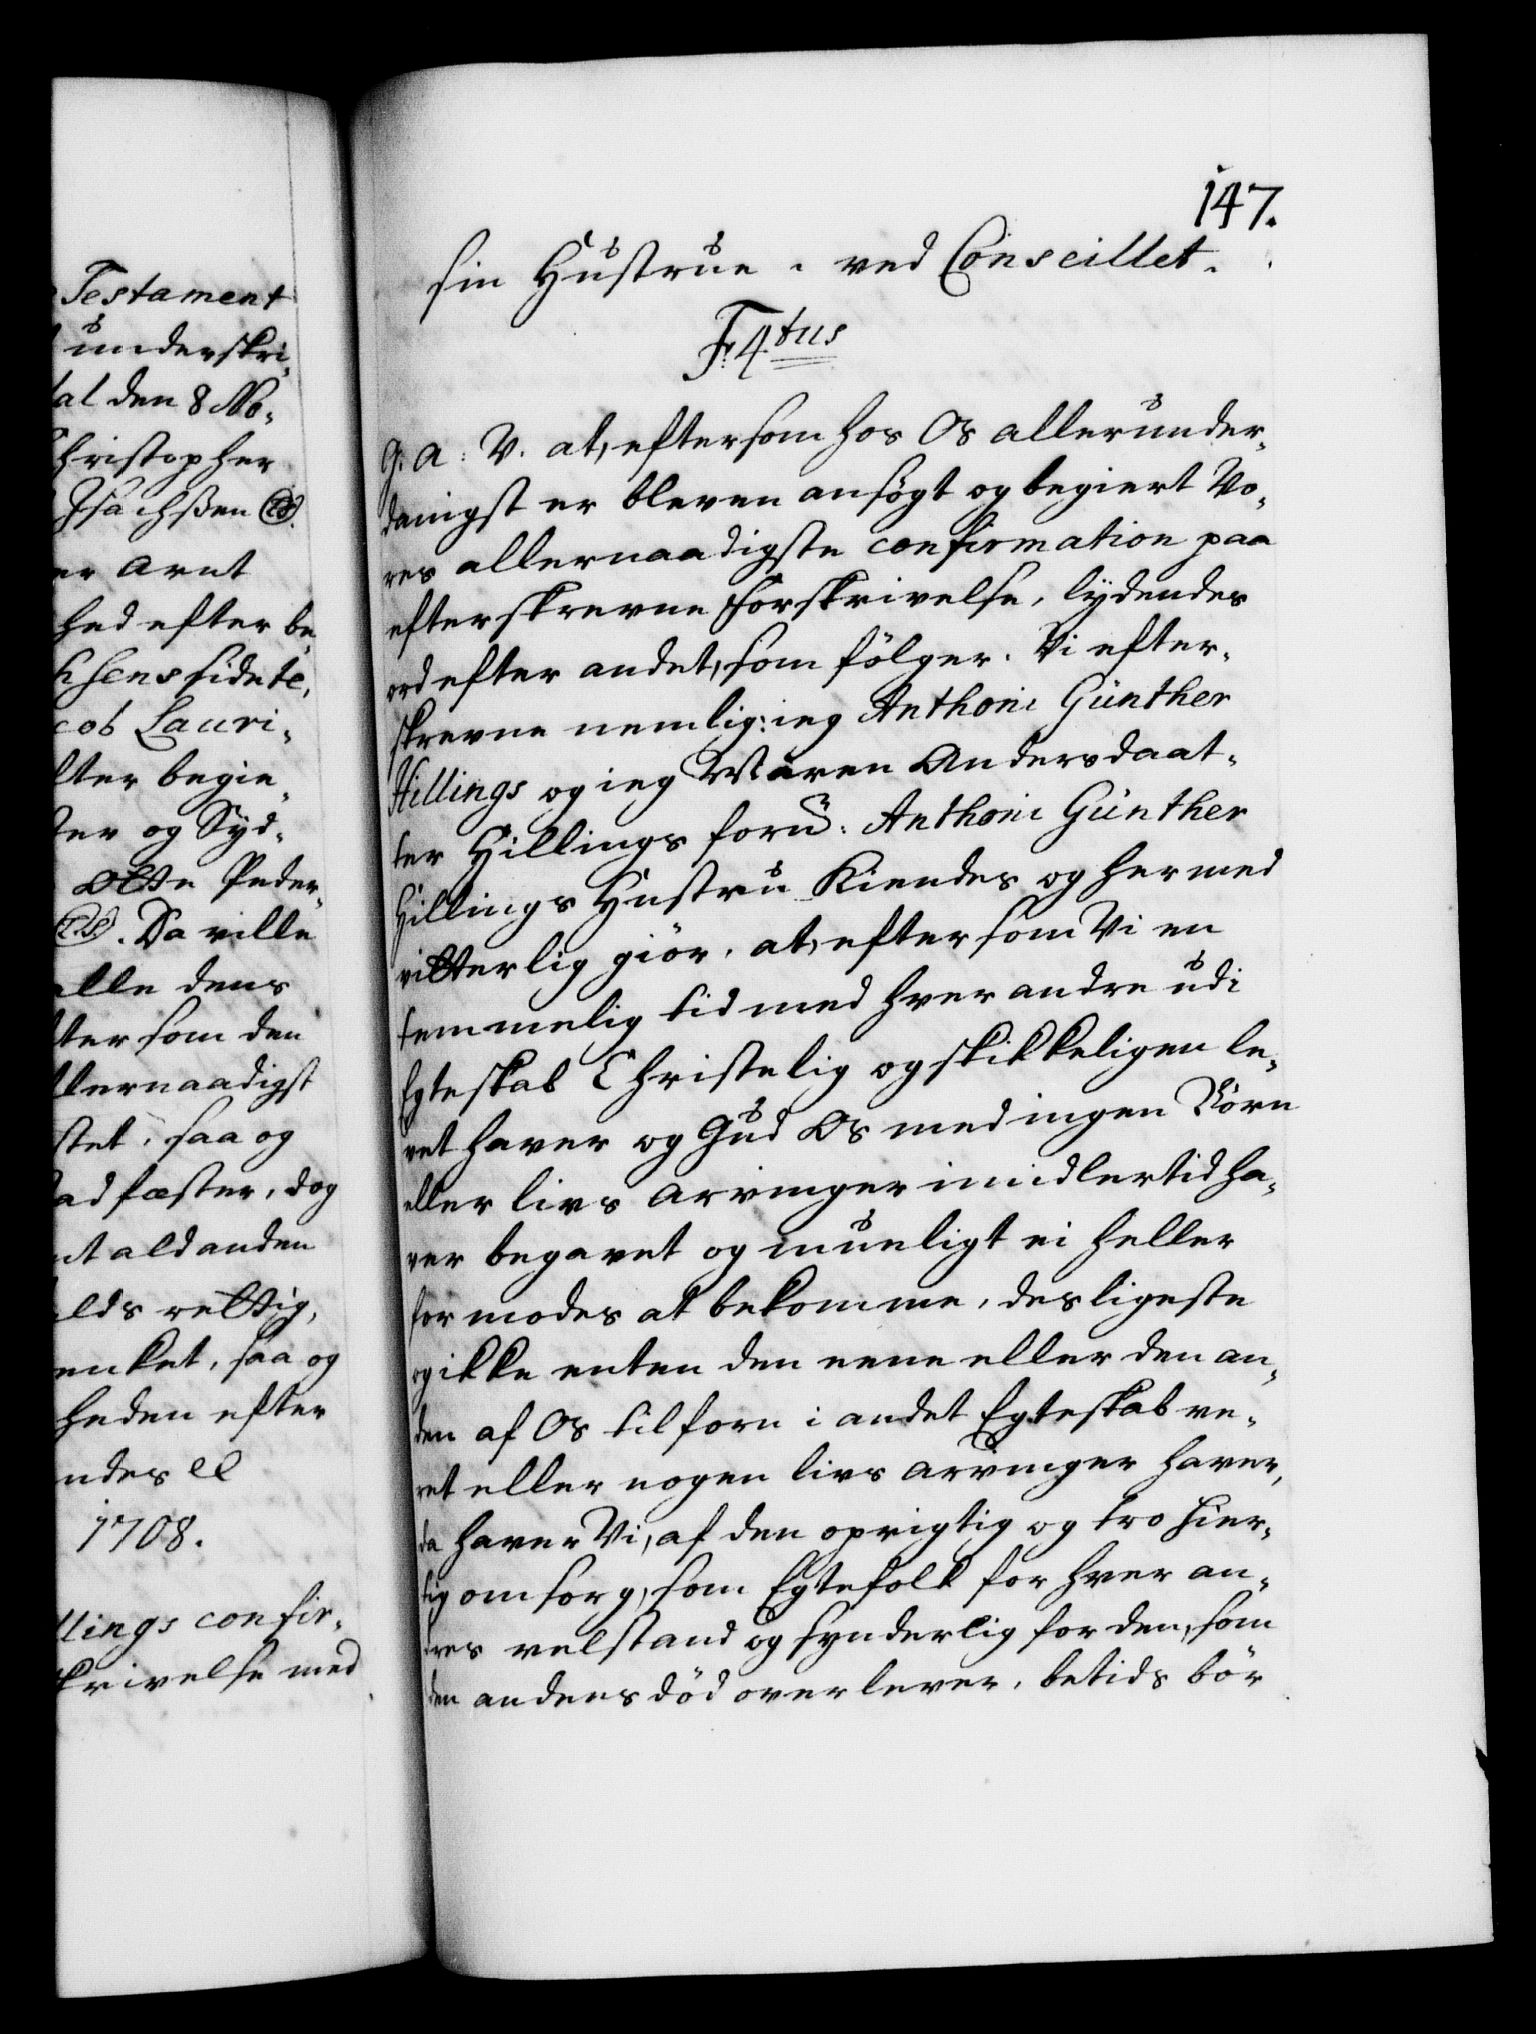 Testament
underskri„
al den 8 No„
hristopher
Isachßen (LS).
er Arnt
hed efter be„
hsens sidste,
cob Lauri„
lter begie„
ter og Syd„
Otte Peder„
(LS). Da ville
alle dens
ter som den
llernaadigst
stet, saa og
ad fæster, dog
nt ald anden
lds rettig„
enket, saa og
heden efter
ndes
1708.
llings confir„
krivelse med
147.
sin Hustrue. ved Conseillet.
F. 4tus
G. A: V. at, eftersom hos Os allerunder„
danigst er bleven ansögt og begiert Vo„
res allernaadigste confirmation paa
efterskrevne Forskrivelse, lÿdendes
ord efter andet, som fölger. Vi efter„
skrevne nemlig: ieg Anthoni Günther
Hillings og ieg Maren Andersdaat„
ter Hillings forn: Anthoni Günther
Hillings Hustru Kiendes og hermed
vitterlig giör, at, eftersom Vi en
temmelig tid med hver andre udi
Egteskab Christelig og skikkeligen le„
vet haver og Gud Os med ingen Börn
eller livs Arvinger imidlertid ha„
ver begavet og muuligt ei heller
formodes at bekomme, desligeste
og ikke enten den eene eller den an„
den af Os tilforn i andet Egteskab ve„
ret eller nogen livs arvinger haver,
da haver Vi, af den oprigtig og tro hier„
tig omsorg, som Egtefolk for hver an„
dres velstand og synderlig for den, som
den andens död overlever, betids bör